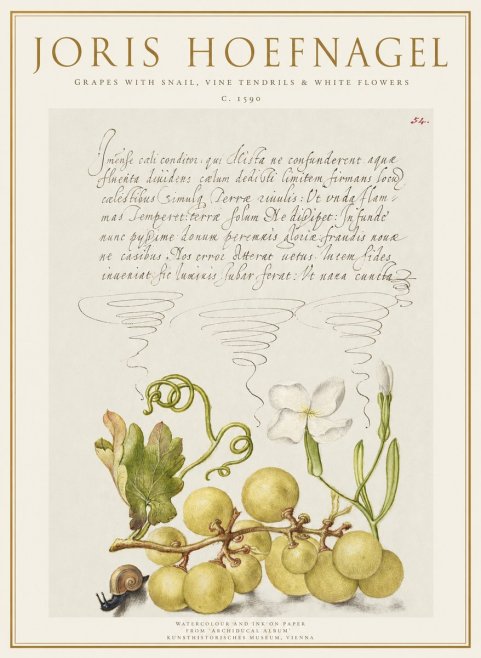 JORIS HOEFNAGEL
GRAPES WITH SNAIL, VINE TENDRILS & WHITE FLOWERS
C. 1590
54.
Jmense cæli conditor: qui Mista ne confunderent aquæ
fluenta dividens cælum dedisti limitem firmans locũ
cælestibus Simulq, Terræ rivulis: Ut unda flam-
mas Temperet: terræ solum Ne dissipet: Infunde
nunc pyssime donum perennis gloriæ fraudis novæ
ne casibus: Nos error Atterat vetus. lucem fides
inveniat sic luminis Jubar ferat: Ut nana cuncta
WATERCOLOUR AND INK ON PAPER
FROM 'ARCHIDUCAL ALBUM'
KUNSTHISTORISCHES MUSEUM, VIENNA